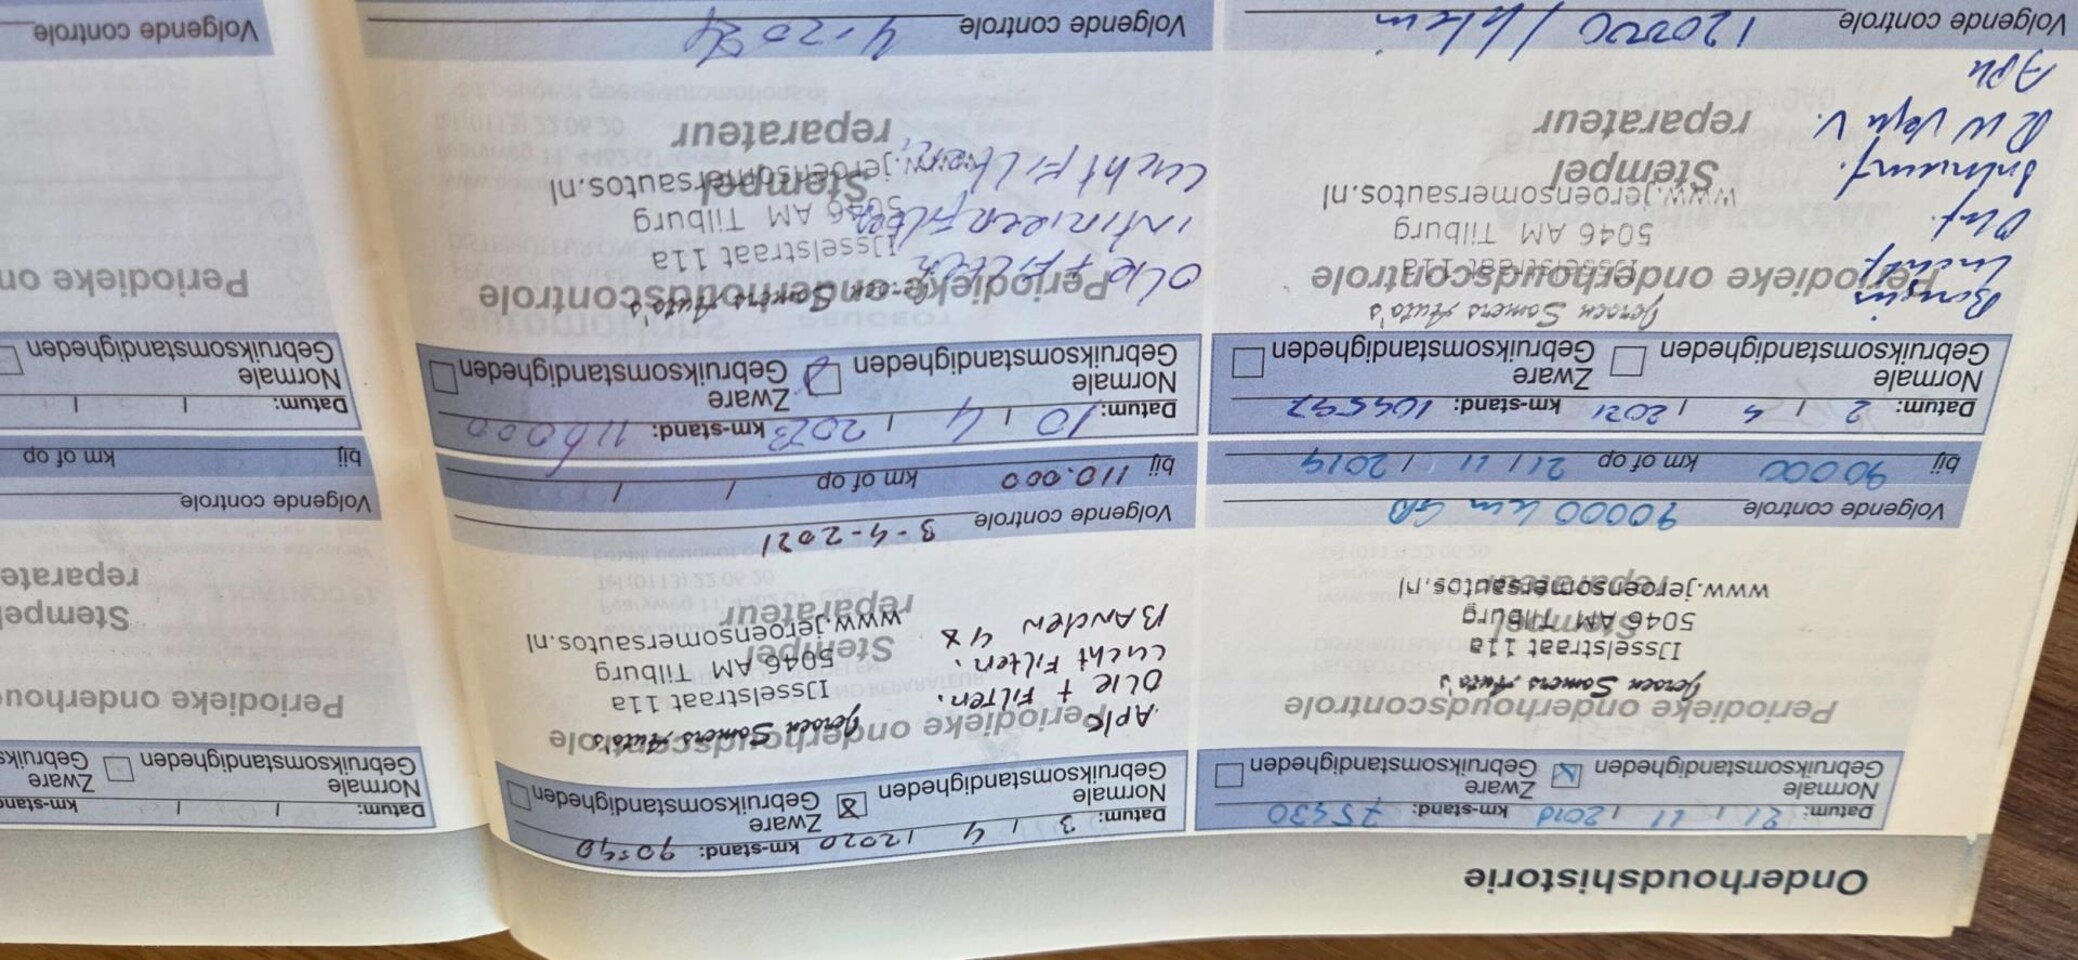 Onderhoudshistorie
Datum: 21 / 11 / 2018 km-stand: 75430
Normale
Gebruiksomstandigheden
Zware
Gebruiksomstandigheden
Periodieke onderhoudscontrole
Jeroen Somers Auto's
IJsselstraat 11a
5046 AM Tilburg
Stempel
www.jeroensomersautos.nl
reparateur
Volgende controle 90000 km GB
bij 90000 km of op 21 / 11 / 2019
Datum: 3 / 4 / 2020 km-stand: 90590
Normale
Gebruiksomstandigheden
Zware
Gebruiksomstandigheden
Periodieke onderhoudscontrole
Jeroen Somers Auto's
IJsselstraat 11a
5046 AM Tilburg
Stempel
www.jeroensomersautos.nl
reparateur
APK
OLIE + FILTER.
LUCHT FILTER.
BANDEN 4X
Volgende controle 3-4-2021
bij 110.000 km of op / /
Datum: 2 / 4 / 2021 km-stand: 104592
Normale
Gebruiksomstandigheden
Zware
Gebruiksomstandigheden
Jeroen Somers Auto's
Periodieke onderhoudscontrole
IJsselstraat 11a
5046 AM Tilburg
www.jeroensomersautos.nl
Stempel
reparateur
Luchtf.
Olief.
Interieurf.
APK
Volgende controle 120000 / klein
Datum: 10 / 4 / 2023 km-stand: 116000
Normale
Gebruiksomstandigheden
Zware
Gebruiksomstandigheden
Periodieke onderhoudscontrole
Jeroen Somers Auto's
IJsselstraat 11a
5046 AM Tilburg
www.jeroensomersautos.nl
Stempel
reparateur
OLIE + FILTER
INTERIEER FILTER
LUCHT FILTER
Volgende controle 4-2024
Datum: / / km-stand
Normale
Gebruiksomstandigheden
Zware
Gebruiks
Periodieke onderhou
Stempel
reparate
Volgende controle
bij km of op
Datum: / /
Normale
Gebruiksomstandigheden
Periodieke on
Volgende controle